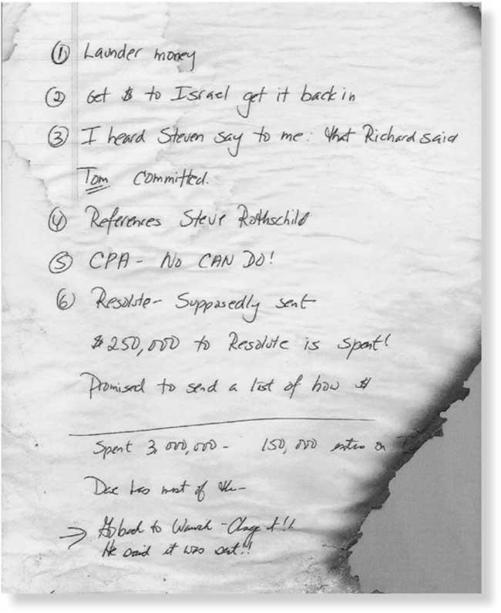 ① Launder money
② Get $ to Israel get it back in
③ I heard Steven say to me: that Richard said
Tom committed.
④ References Steve Rothschild
⑤ CPA - No CAN DO!
⑥ Resolute - Supposedly sent
$250,000 to Resolute is spent!
Promised to send a list of how $
Spent 3,000,000 - 150,000 on
has most of the -
to !!
He said it was sent!!